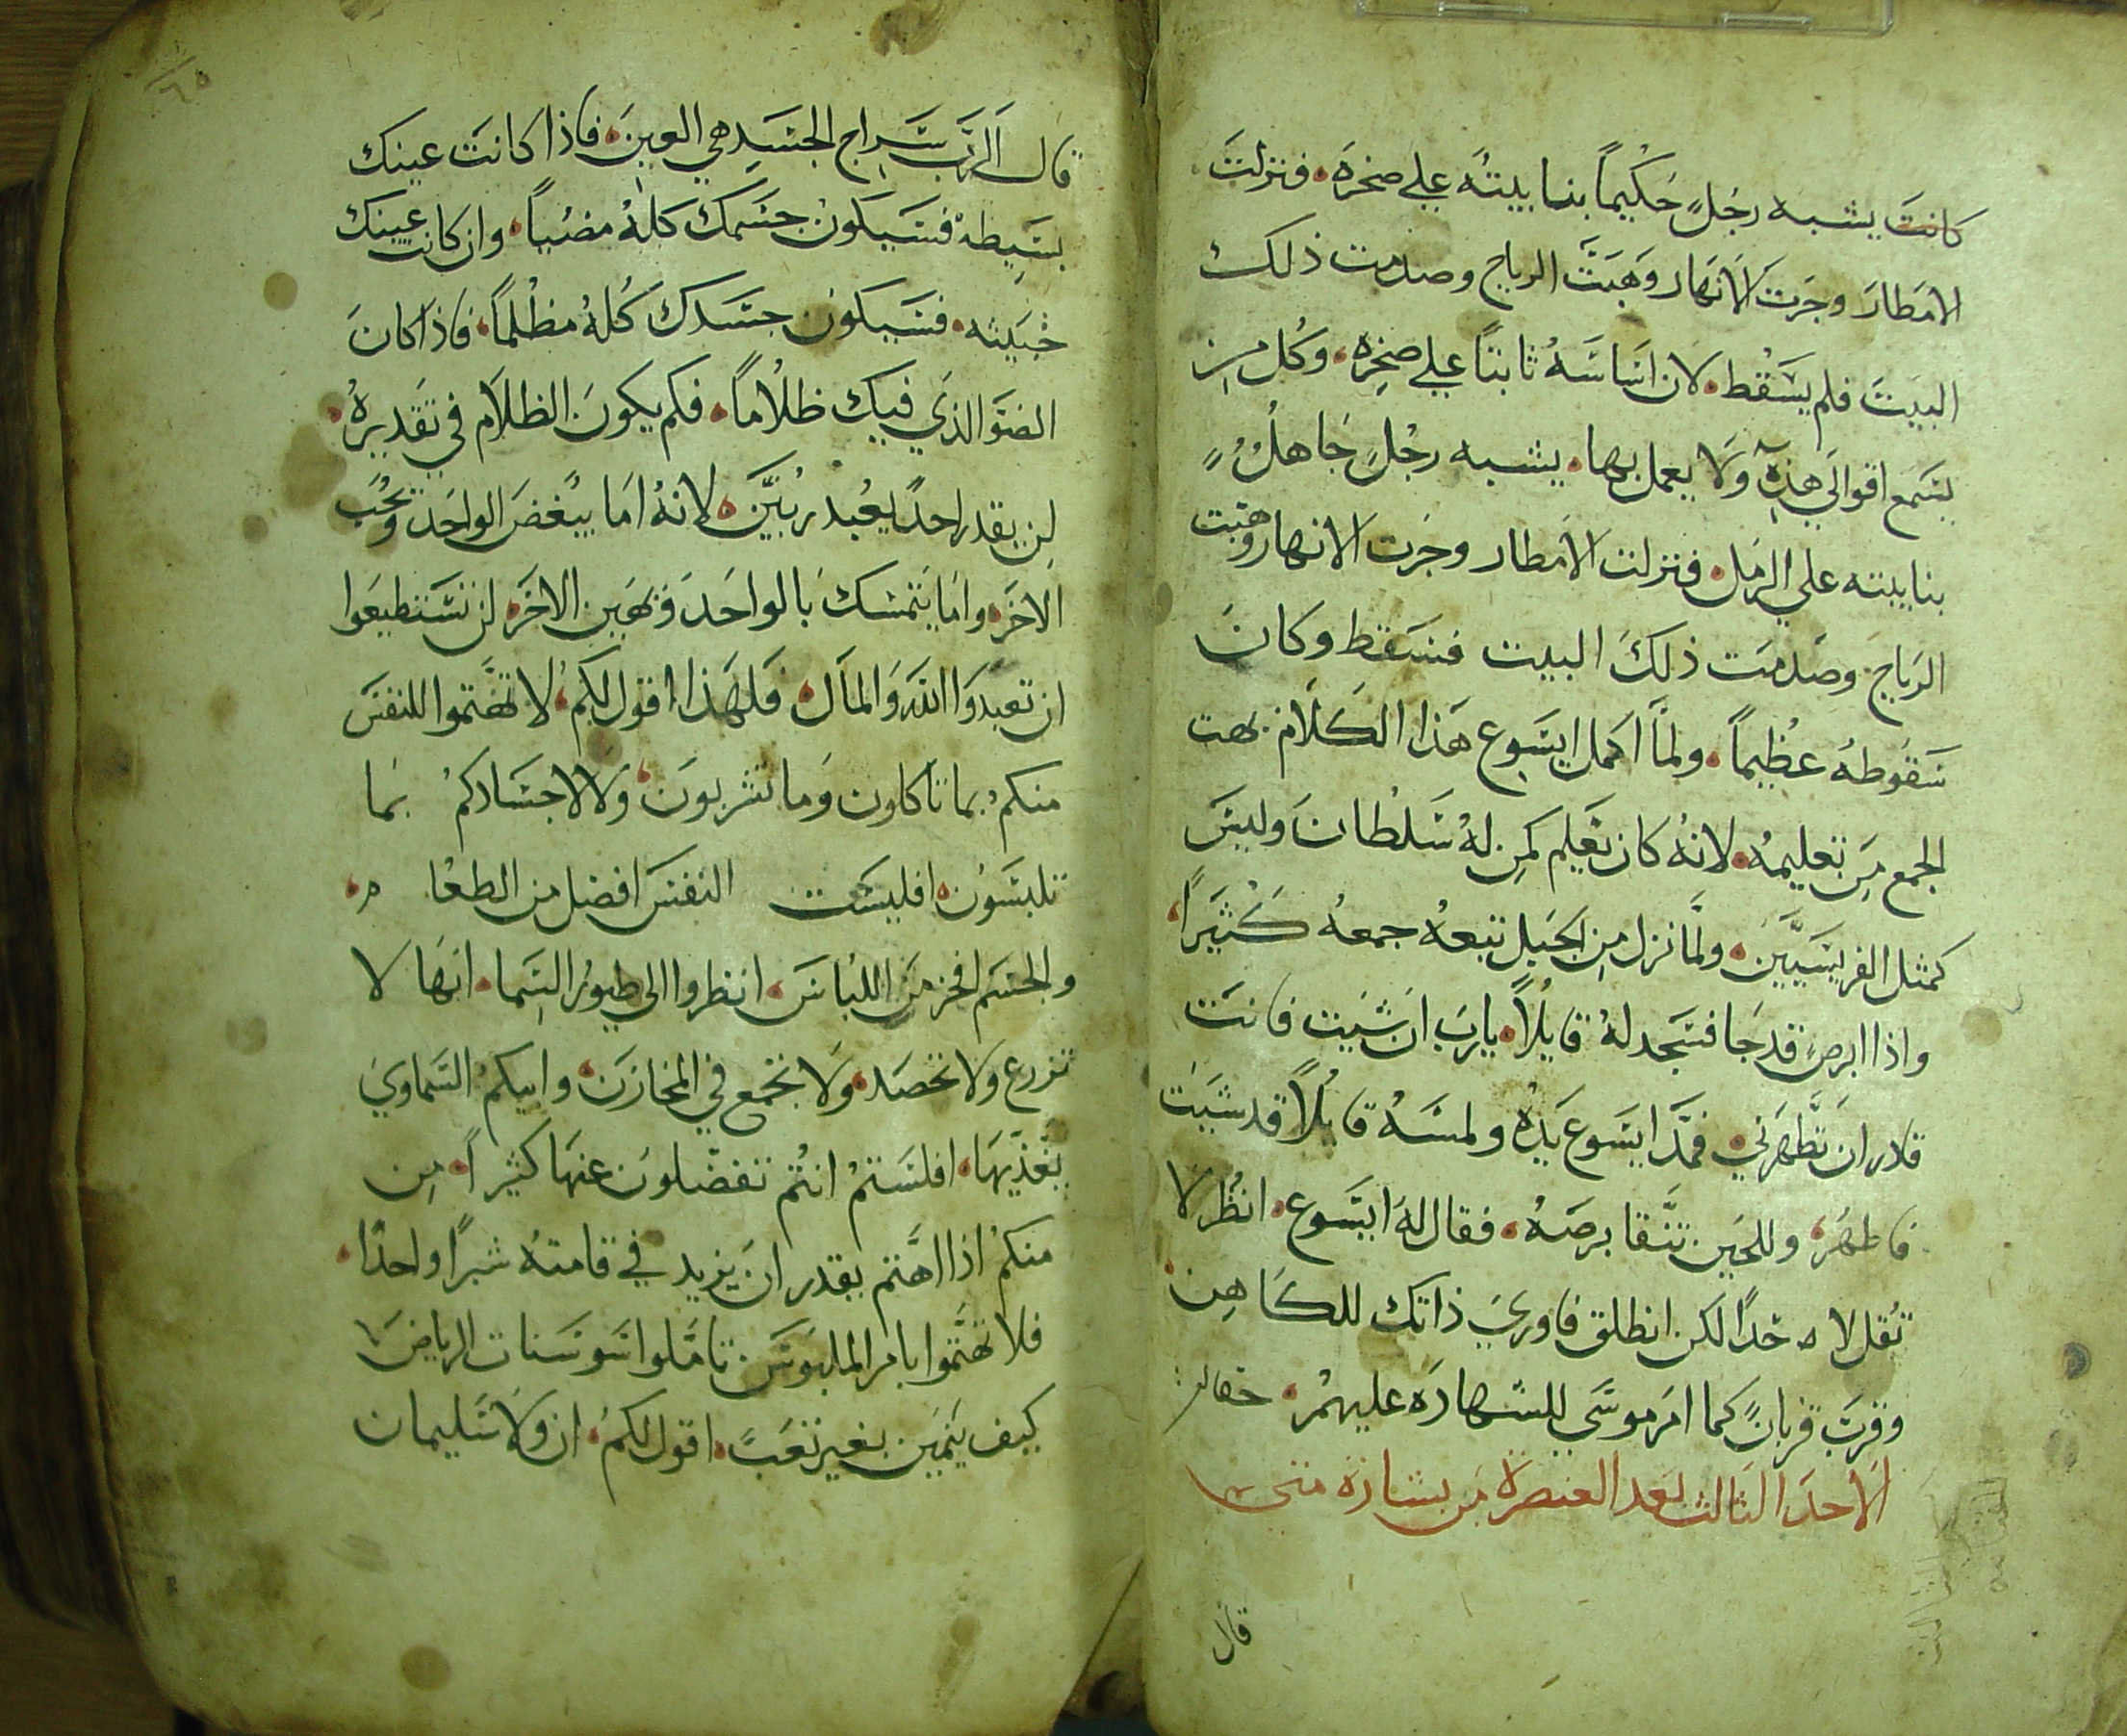 كانت يشبه رجلٍ حكيماً بنا بيته علي صخره، فنزلت
الامطار وجرت الانهار وهبت الرياح وصدمت ذلك
البيت فلم يسقط، لان اساسه ثابتاً علي صخره، وكل من
يسمع اقوالي هذه ولا يعمل بها، يشبه رجلٍ جاهلٍ
بنا بيته علي الرمل، فنزلت الامطار وجرت الانهار وهبت
الرياح وصدمت ذلك البيت فسقط وكان
سقوطه عظيماً، ولما اكمل ايسوع هذا الكلام بهت
الجمع من تعليمه، لانه كان تعليم كمن له سلطان وليس
كمثل الفريسيين، ولما نزل من الجبل تبعه جمعه كثيراً،
واذا ابرصٍ قد جا فسجد له قايلاً، يارب ان شيت فانت
قادر ان تطهرني، فمد ايسوع يده ولمسه قايلاً قد شيت
فاطهر، وللحين تنقا برصه، فقال له ايسوع، انظر لا
تقل لاحداً لكن انطلق فاوري ذاتك للكاهن،
وقرب قربانٍ كما امر موسي للشهاده عليهم،
الاحد الثالث بعد العنصرة من بشارة متي
قال
٦٥
قال الرب سراج الجسد هي العين، فاذا كانت عينك
بسيطه فسيكون جسمك كله مضياً، وان كانت عينك
خبيثه، فسيكون جسدك كله مظلماً، فاذا كان
الضو الذي فيك ظلاماً، فكم يكون الظلام في تقديره،
لن يقدر احداً يعبد ربين، لانه اما يبغض الواحد ويحب
الاخر، واما يتمسك بالواحد ويهين الاخر، لن تستطيعوا
ان تعبدوا الله والمال، فلهذا اقول لكم، لا تهتموا للنفس
منكم بما تاكلون وما تشربون، ولا لاجسادكم بما
تلبسون، افليست النفس افضل من الطعام،
والجسم افخر من اللباس، انظروا الي طيور السما، انها لا
تزرع ولا تحصد، ولا تجمع في المخازن، وابيكم السماوي
يغذيها، افلستم انتم تفضلون عنها كثيراً، من
منكم اذا اهتم يقدر ان يزيد في قامته شبراً واحداً،
فلا تهتموا بامر الملبوس تاملوا سوسنات الرياض
كيف ينمين بغير تعبً، اقول لكم، ان ولا سليمان